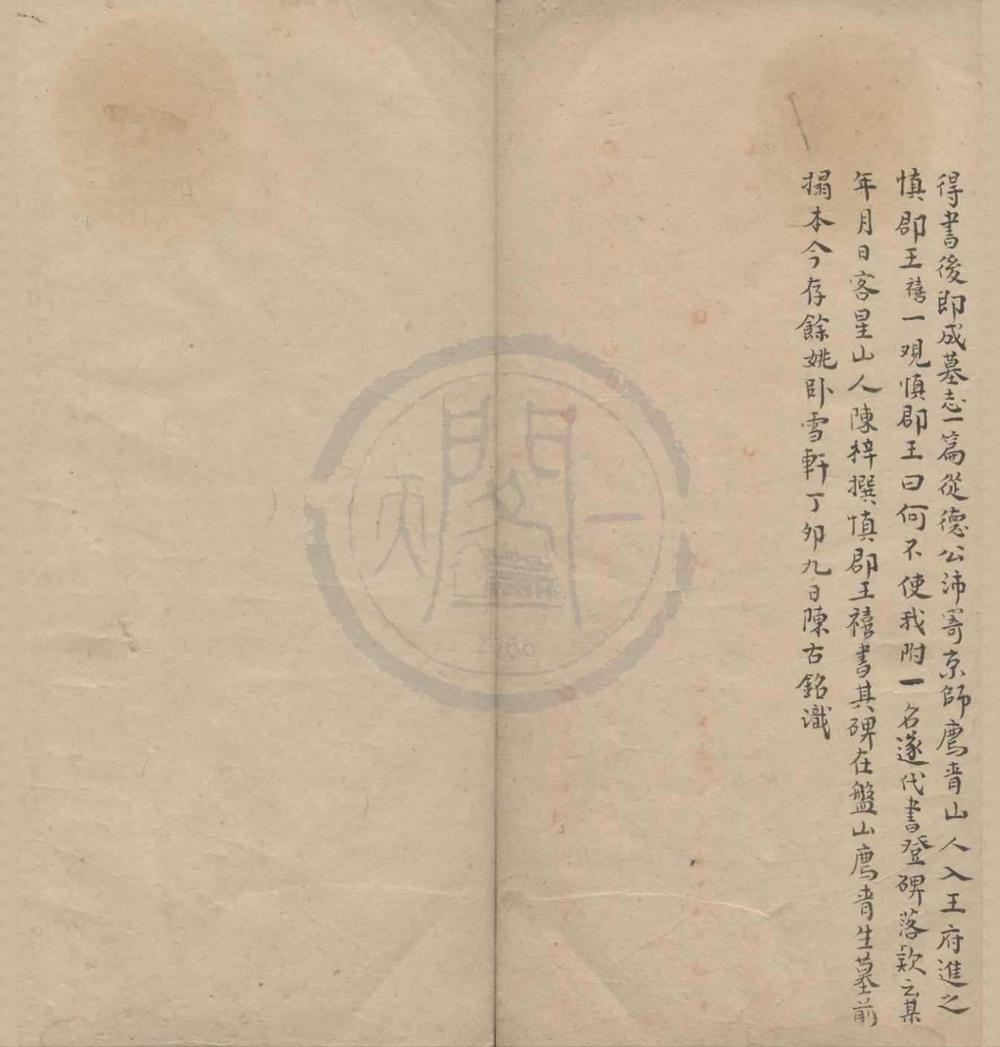 得書後即成墓志一篇從德公沛寄京師廌青山人入王府進之
慎郡王禧一观慎郡王曰何不使我附一名遂代書登碑落款云某
年月日客星山人陳梓撰慎郡王禧書其碑在盤山廌青生墓前
搨本今存餘姚卧雪軒丁卯九日陳古銘識